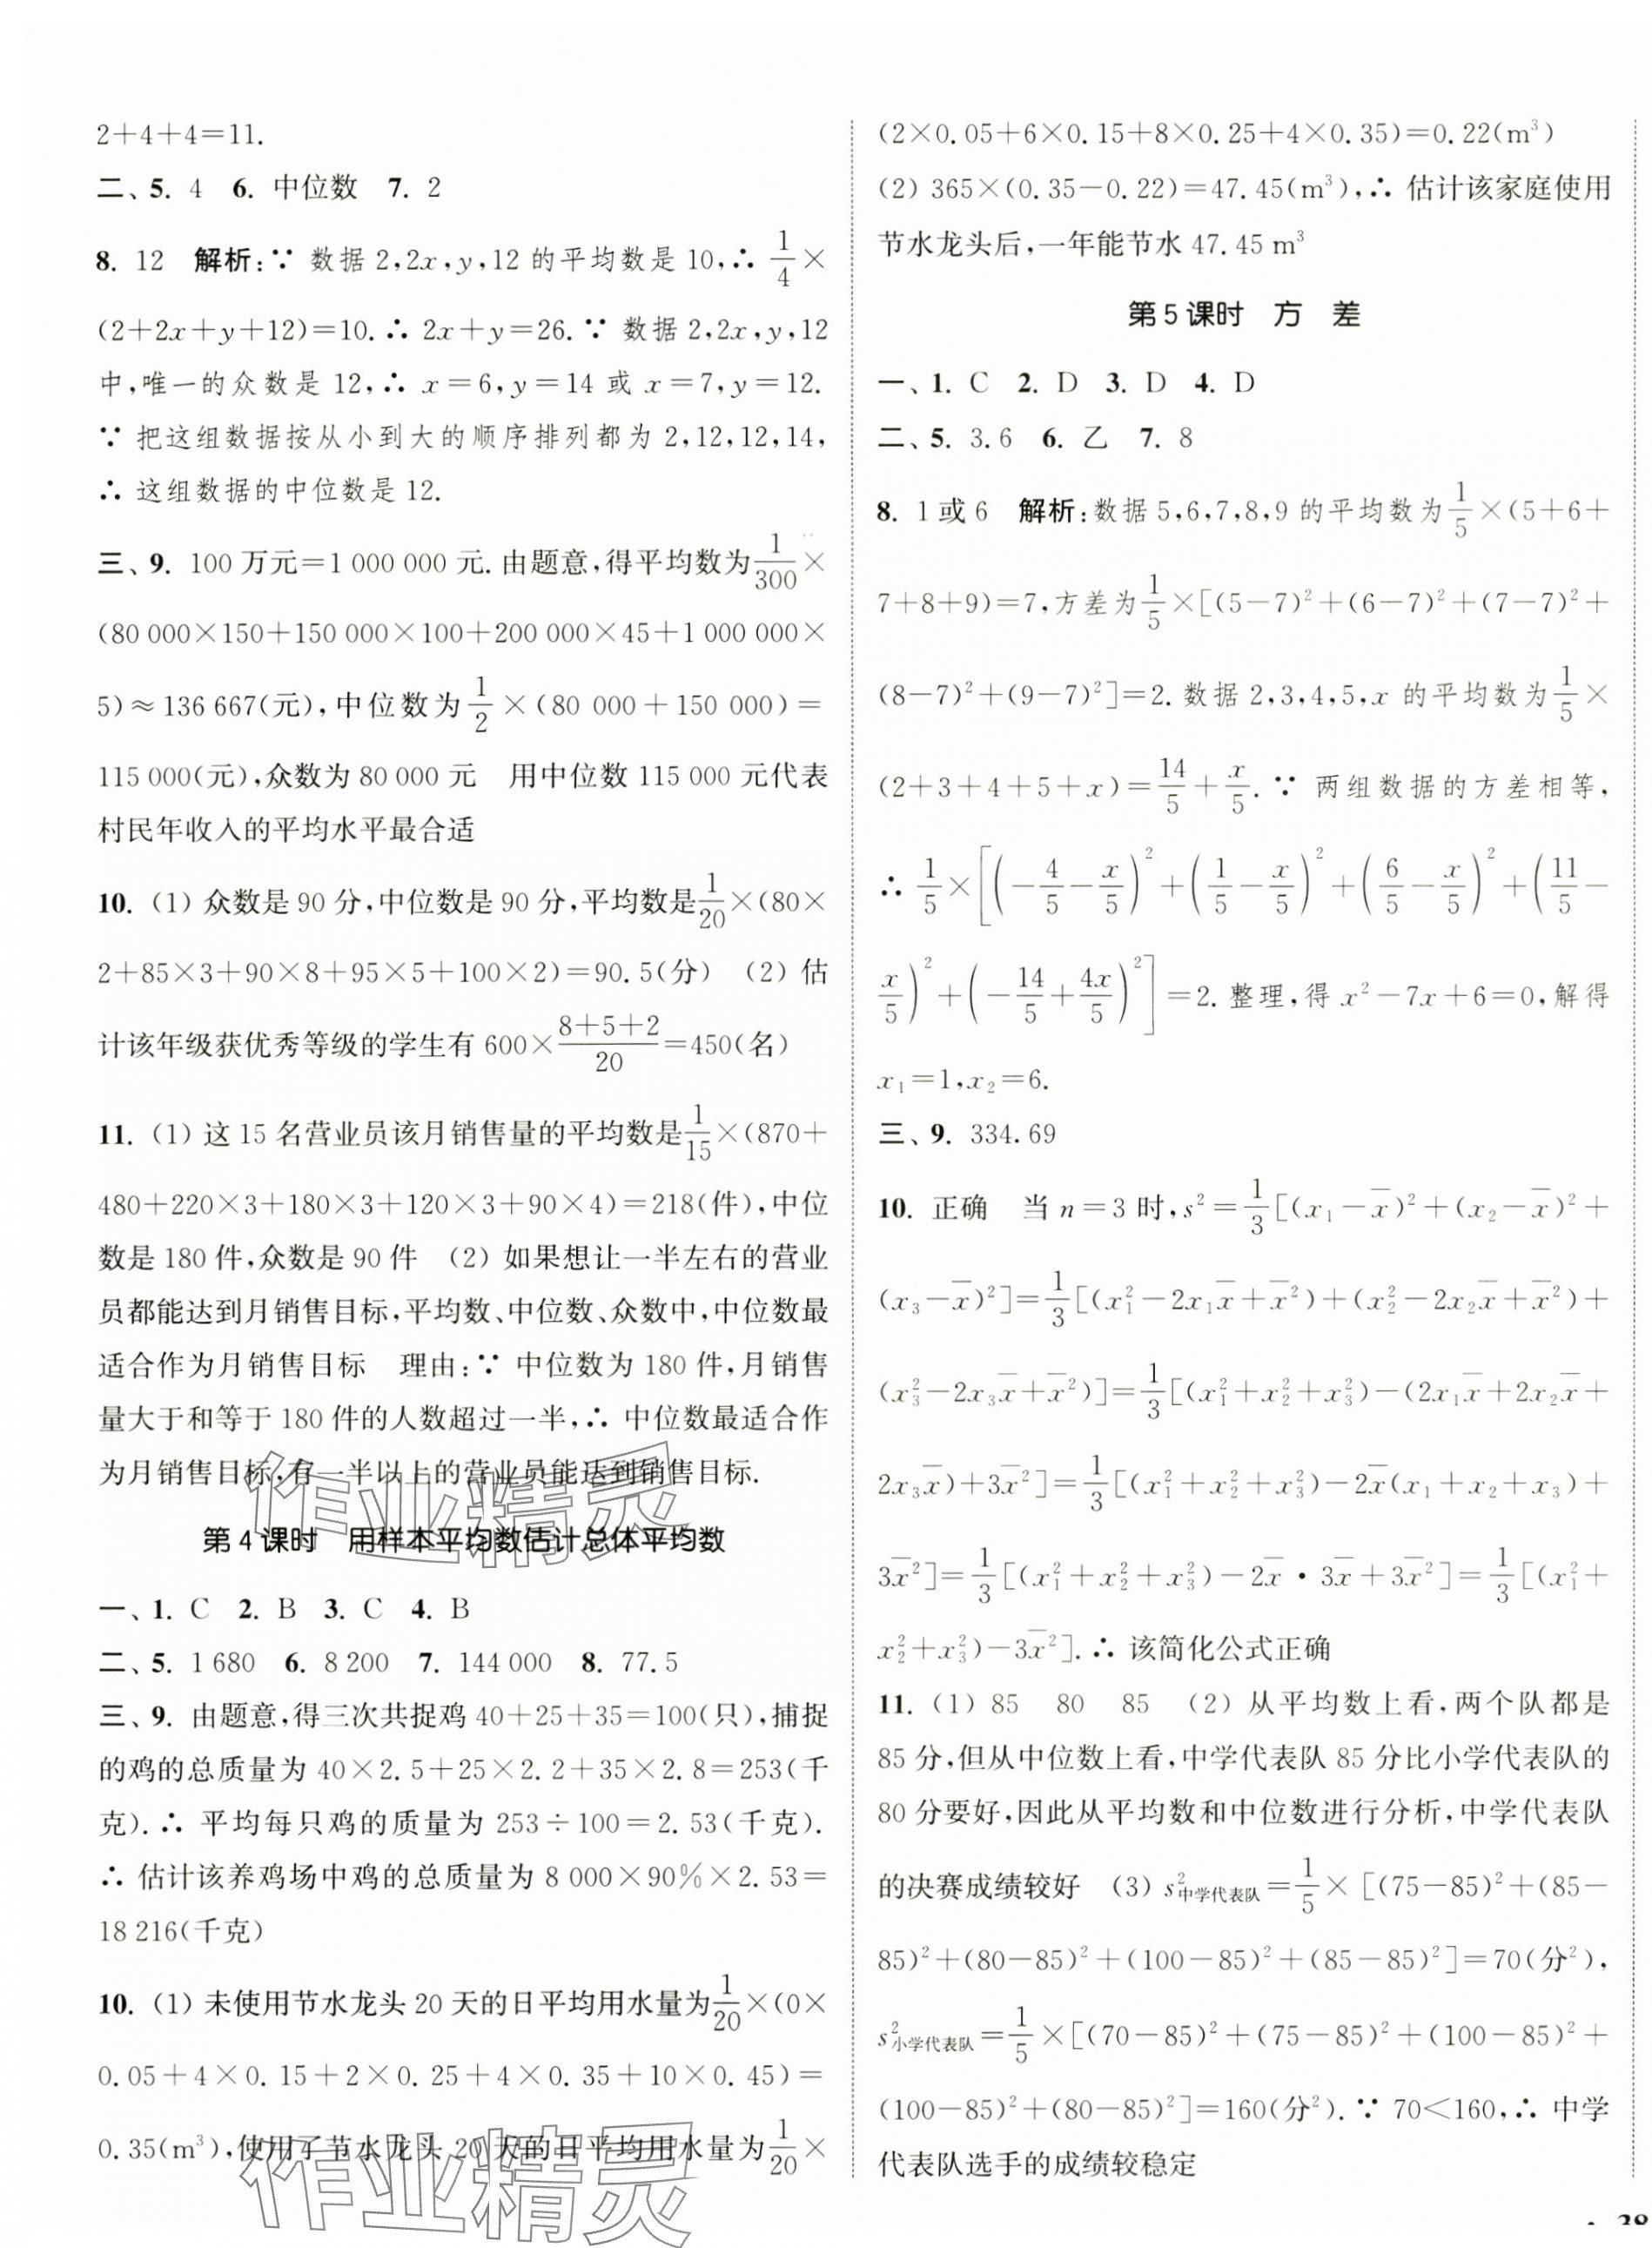 2+4+4=11.
二、5. 4 6. 中位数 7. 2
8. 12 解析:∵ 数据 2,2x,y,12 的平均数是 10,∴ 1/4×
(2+2x+y+12)=10.∴ 2x+y=26.∵ 数据 2,2x,y,12
中,唯一的众数是 12,∴ x=6,y=14 或 x=7,y=12.
∵ 把这组数据按从小到大的顺序排列都为 2,12,12,14,
∴ 这组数据的中位数是 12.
三、9. 100 万元=1 000 000 元.由题意,得平均数为1/300×
(80 000×150+150 000×100+200 000×45+1 000 000×
5)≈136 667(元),中位数为1/2×(80 000+150 000)=
115 000(元),众数为 80 000 元 用中位数 115 000 元代表
村民年收入的平均水平最合适
10. (1) 众数是 90 分,中位数是 90 分,平均数是1/20×(80×
2+85×3+90×8+95×5+100×2)=90.5(分) (2) 估
计该年级获优秀等级的学生有 600×(8+5+2)/20=450(名)
11. (1) 这 15 名营业员该月销售量的平均数是1/15×(870+
480+220×3+180×3+120×3+90×4)=218(件),中位
数是 180 件,众数是 90 件 (2) 如果想让一半左右的营业
员都能达到月销售目标,平均数、中位数、众数中,中位数最
适合作为月销售目标 理由:∵ 中位数为 180 件,月销售
量大于和等于 180 件的人数超过一半,∴ 中位数最适合作
为月销售目标,有一半以上的营业员能达到销售目标.
作业精灵
第 4 课时 用样本平均数估计总体平均数
一、1. C 2. B 3. C 4. B
二、5. 1 680 6. 8 200 7. 144 000 8. 77.5
三、9. 由题意,得三次共捉鸡 40+25+35=100(只),捕捉
的鸡的总质量为 40×2.5+25×2.2+35×2.8=253(千
克).∴ 平均每只鸡的质量为 253÷100=2.53(千克).
∴ 估计该养鸡场中鸡的总质量为 8 000×90%×2.53=
18 216(千克)
10. (1) 未使用节水龙头 20 天的日平均用水量为1/20×(0×
0.05+4×0.15+2×0.25+4×0.35+10×0.45)=
0.35(m³),使用了节水龙头 20 天的日平均用水量为1/20×
作业精灵
(2×0.05+6×0.15+8×0.25+4×0.35)=0.22(m³)
(2) 365×(0.35-0.22)=47.45(m³),∴ 估计该家庭使用
节水龙头后,一年能节水 47.45 m³
第 5 课时 方 差
一、1. C 2. D 3. D 4. D
二、5. 3.6 6. 乙 7. 8
8. 1 或 6 解析:数据 5,6,7,8,9 的平均数为1/5×(5+6+
7+8+9)=7,方差为1/5×[(5-7)²+(6-7)²+(7-7)²+
(8-7)²+(9-7)²]=2.数据 2,3,4,5,x 的平均数为1/5×
(2+3+4+5+x)=14/5+x/5.∵ 两组数据的方差相等,
∴ 1/5×[(-4/5-x/5)²+(1/5-x/5)²+(6/5-x/5)²+(11/5-
x/5)²+(-14/5+4x/5)²]=2.整理,得 x²-7x+6=0,解得
x₁=1,x₂=6.
三、9. 334.69
10. 正确 当 n=3 时,s²=1/3[(x₁-x̄)²+(x₂-x̄)²+
(x₃-x̄)²]=1/3[(x₁²-2x₁x̄+x̄²)+(x₂²-2x₂x̄+x̄²)+
(x₃²-2x₃x̄+x̄²)]=1/3[(x₁²+x₂²+x₃²)-(2x₁x̄+2x₂x̄+
2x₃x̄)+3x̄²]=1/3[(x₁²+x₂²+x₃²)-2x̄(x₁+x₂+x₃)+
3x̄²]=1/3[(x₁²+x₂²+x₃²)-2x̄·3x̄+3x̄²]=1/3[(x₁²+
x₂²+x₃²)-3x̄²].∴ 该简化公式正确
11. (1) 85 80 85 (2) 从平均数上看,两个队都是
85 分,但从中位数上看,中学代表队 85 分比小学代表队的
80 分要好,因此从平均数和中位数进行分析,中学代表队
的决赛成绩较好 (3) s²中学代表队=1/5×[(75-85)²+(85-
85)²+(80-85)²+(100-85)²+(85-85)²]=70(分²),
s²小学代表队=1/5×[(70-85)²+(75-85)²+(100-85)²+
(100-85)²+(80-85)²]=160(分²).∵ 70<160,∴ 中学
代表队选手的成绩较稳定